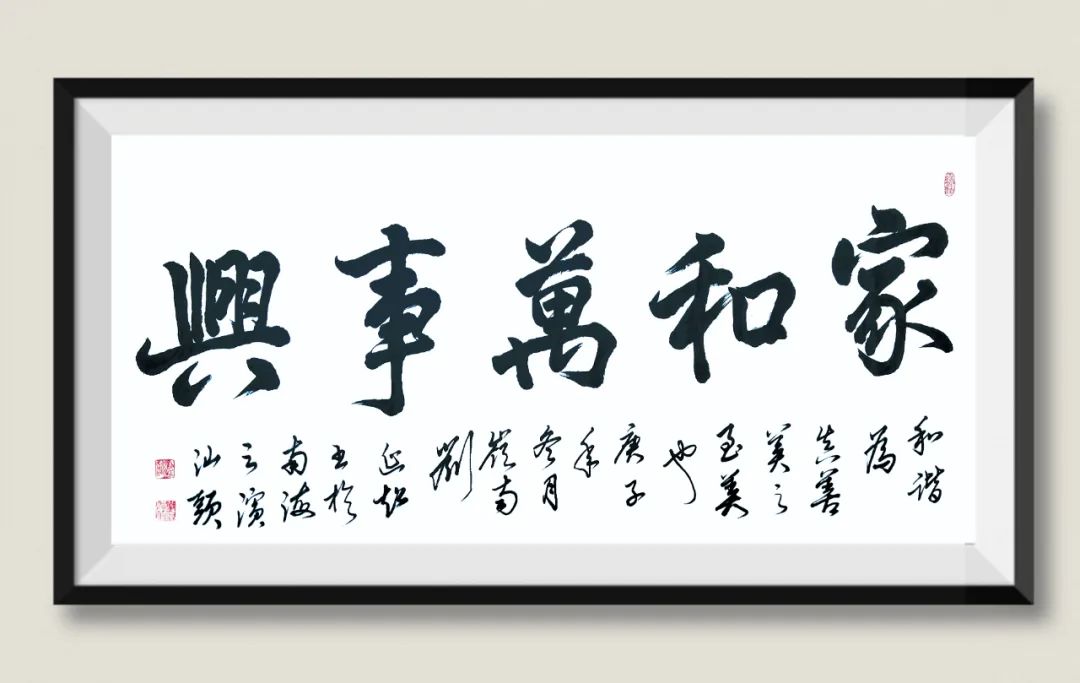 家和萬事興
和谐
為
真善
美之
至美
也
庚子
年
冬月
嶺南
劉
延
书於
南海
之濱
汕頭